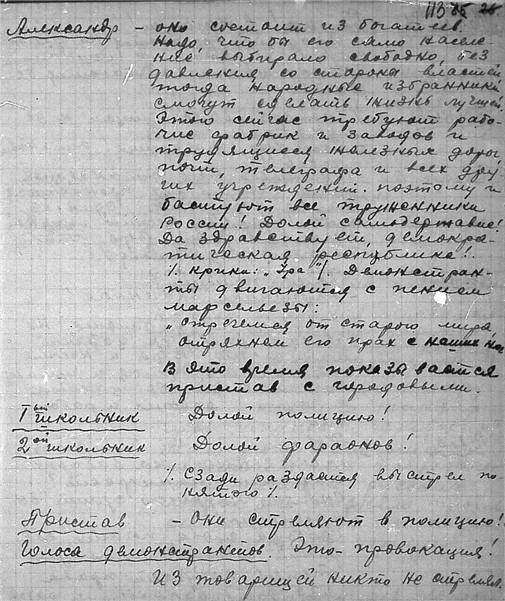 113 25 26.
Александр – оно состоит из богатеев.
Надо, что бы его само населе-
ние выбирало свободно, без
давления со стороны властей
тогда народные избранники
смогут сделать жизнь лучшей.
Этого сейчас требуют рабо-
чие фабрик и заводов и
трудящиеся железных дорог,
почт, телеграфа и всех дру-
гих учреждений. поэтому и
бастуют все труженники
России! Долой самодержавие!
Да здравствует, демокра-
тическая республика!
/. крики: „Ура"/. Демонстран-
ты двигаются с пением
марсельезы:
„отречемся от старого мира,
отряхнем его прах с наших ног
В это время показывается
пристав с городовыми.
1ый школьник Долой полицию!
2ой школьник Долой фараонов!
/. Сзади раздается выстрел по-
нятого /.
Пристав – Они стреляют в полицию!
Голоса демонстрантов. Это-провокация!
Из товарищей никто не стрелял.